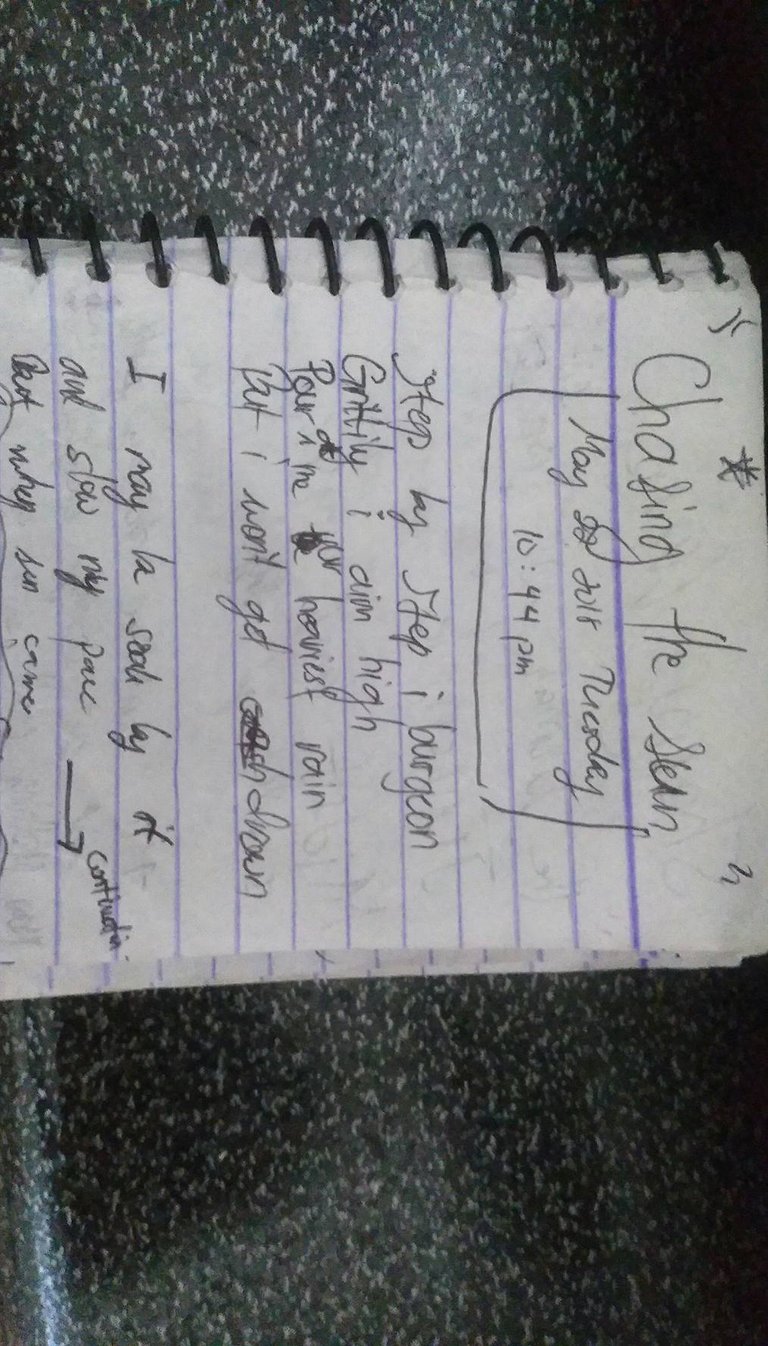 Chasing the
May 2018 Tuesday
10:44 pm
Step by step i burgeon
Grittily i aim high
Pour in me your heaviest rain
But i won't get drown
I may be soak by it
and slow my pace
But when sun came